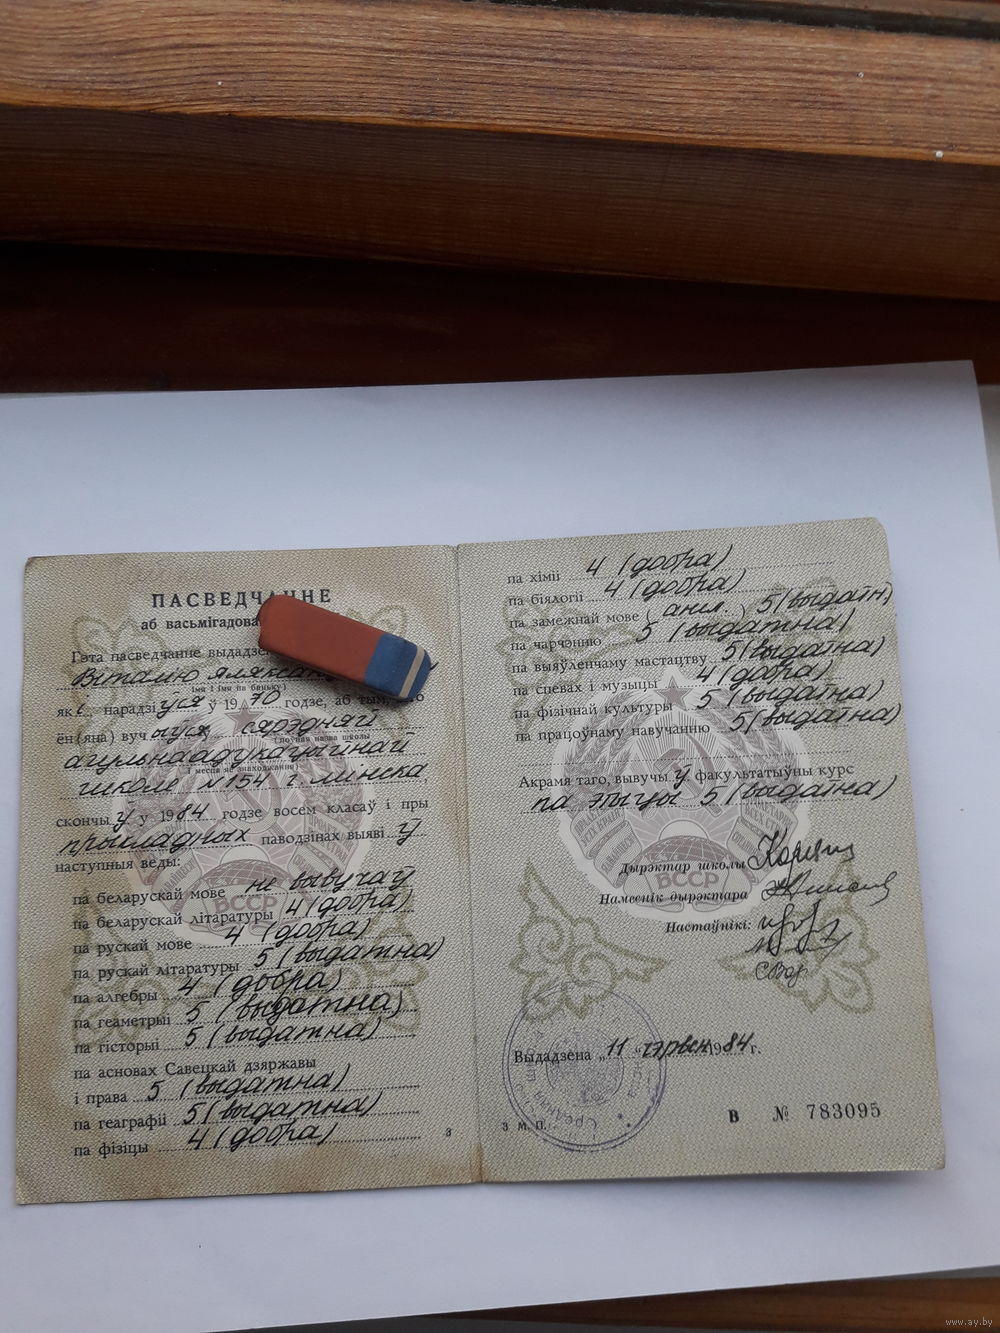 ПАСВЕДЧАННЕ
аб васьмігадова
Гэта пасведчанне выдадзе
Віталю Аляксан
(імя і імя па бацьку)
які нарадзіўся ў 1970 годзе, аб тым,
ён(яна) вучыўся сярэдняй
(поўная назва школы
агульнаадукацыйнай
і месца яе знаходжання)
школе №154 г. Мінска,
скончыў у 1984 годзе восем класаў і пры
прыкладных паводзінах выявіў
наступныя веды:
па беларускай мове не вывучаў
па беларускай літаратуры 4 (добра)
па рускай мове 4 (добра)
па рускай літаратуры 5 (выдатна)
па алгебры 4 (добра)
па геаметрыі 5 (выдатна)
па гісторыі 5 (выдатна)
па асновах Савецкай дзяржавы
і права 5 (выдатна)
па геаграфіі 5 (выдатна)
па фізіцы 4 (добра)
3
па хіміі 4 (добра)
па біялогіі 4 (добра)
па замежнай мове (англ.) 5 (выдатн)
па чарчэнню 5 (выдатна)
па выяўленчаму мастацтву 5 (выдатна)
па спевах і музыцы 4 (добра)
па фізічнай культуры 5 (выдатна)
па працоўнаму навучанню 5 (выдатна)
Акрамя таго, вывучыў факультатыўны курс
па этыцы 5 (выдатна)
БССР
БССР
Дырэктар школы
Намеснік дырэктара
Настаўнікі:
Выдадзена „11“ чэрвеня 1984 г.
З М. П.
В № 783095
www.ay.by